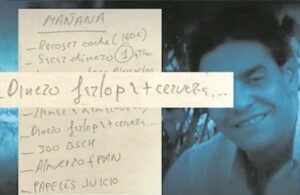 MAÑANA
_ Recoger coche (160€)
_ Sacar dinero (1
_ Dinero farlopa + cerveza...
_ Dinero farlopa + cerveza...
_ 300 BSCH
_ Almuerzo + PAN
_ PAPELES JUICIO